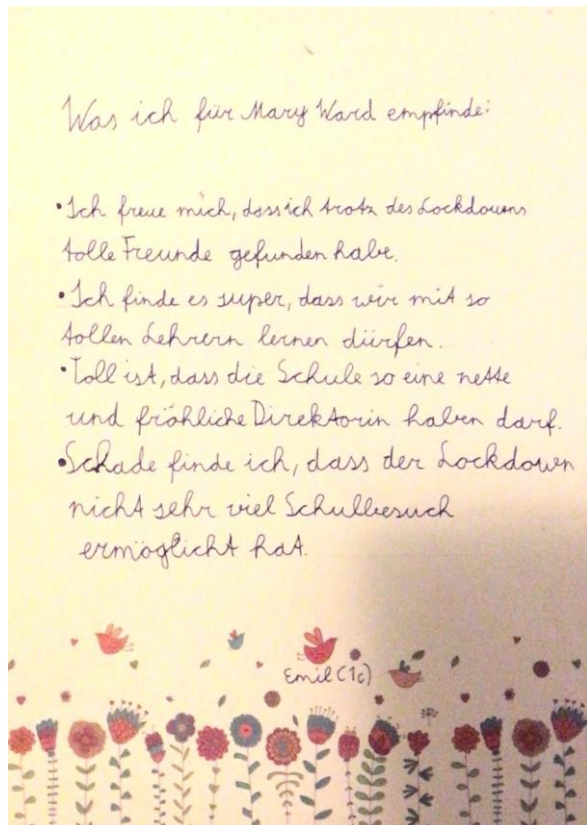 Was ich für Mary Ward empfinde:
• Ich freue mich, dass ich trotz des Lockdowns
tolle Freunde gefunden habe.
• Ich finde es super, dass wir mit so
tollen Lehrern lernen dürfen.
• Toll ist, dass die Schule so eine nette
und fröhliche Direktorin haben darf.
• Schade finde ich, dass der Lockdown
nicht sehr viel Schulbesuch
ermöglicht hat.
Emil (1c)